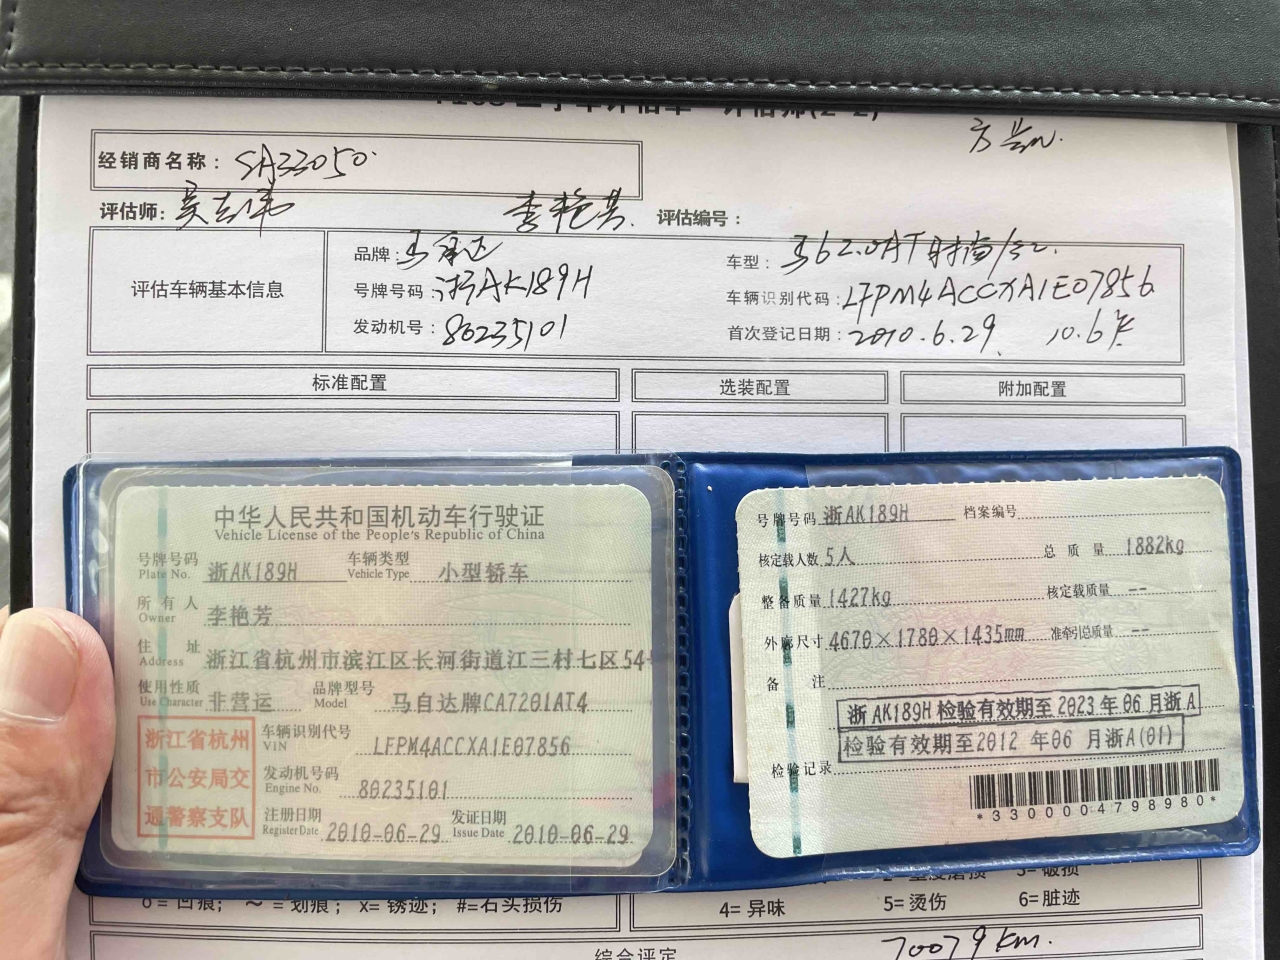 经销商名称：SA33050
评估师：吴志伟 李艳芳 评估编号：
评估车辆基本信息
品牌：马自达 车型：马6 2.0AT时尚/
号牌号码：浙AK189H 车辆识别代码：LFPM4ACCXA1E07856
发动机号：80235101 首次登记日期：2010.6.29 10.6
标准配置 选装配置 附加配置
中华人民共和国机动车行驶证
Vehicle License of the People's Republic of China
号牌号码 浙AK189H 车辆类型 小型轿车
Plate No. Vehicle Type
所有人 李艳芳
Owner
住址 浙江省杭州市滨江区长河街道江三村七区54
Address
使用性质 非营运 品牌型号 马自达牌CA7201AT4
Use Character Model
浙江省杭州
市公安局交
通警察支队
车辆识别代号 LFPM4ACCXA1E07856
VIN
发动机号码 80235101
Engine No.
注册日期 2010-06-29 发证日期 2010-06-29
Register Date Issue Date
号牌号码 浙AK189H 档案编号
核定载人数 5人 总质量 1882kg
整备质量 1427kg 核定载质量 --
外廓尺寸 4670×1780×1435mm 准牵引总质量 --
备注
浙AK189H检验有效期至2023年06月浙A
检验有效期至2012年06月浙A(01)
检验记录
*3300004798980*
o=凹痕； ～=划痕； x=锈迹； #=石头损伤
4=异味 5=烫伤 6=脏迹
综合评定 70079km.